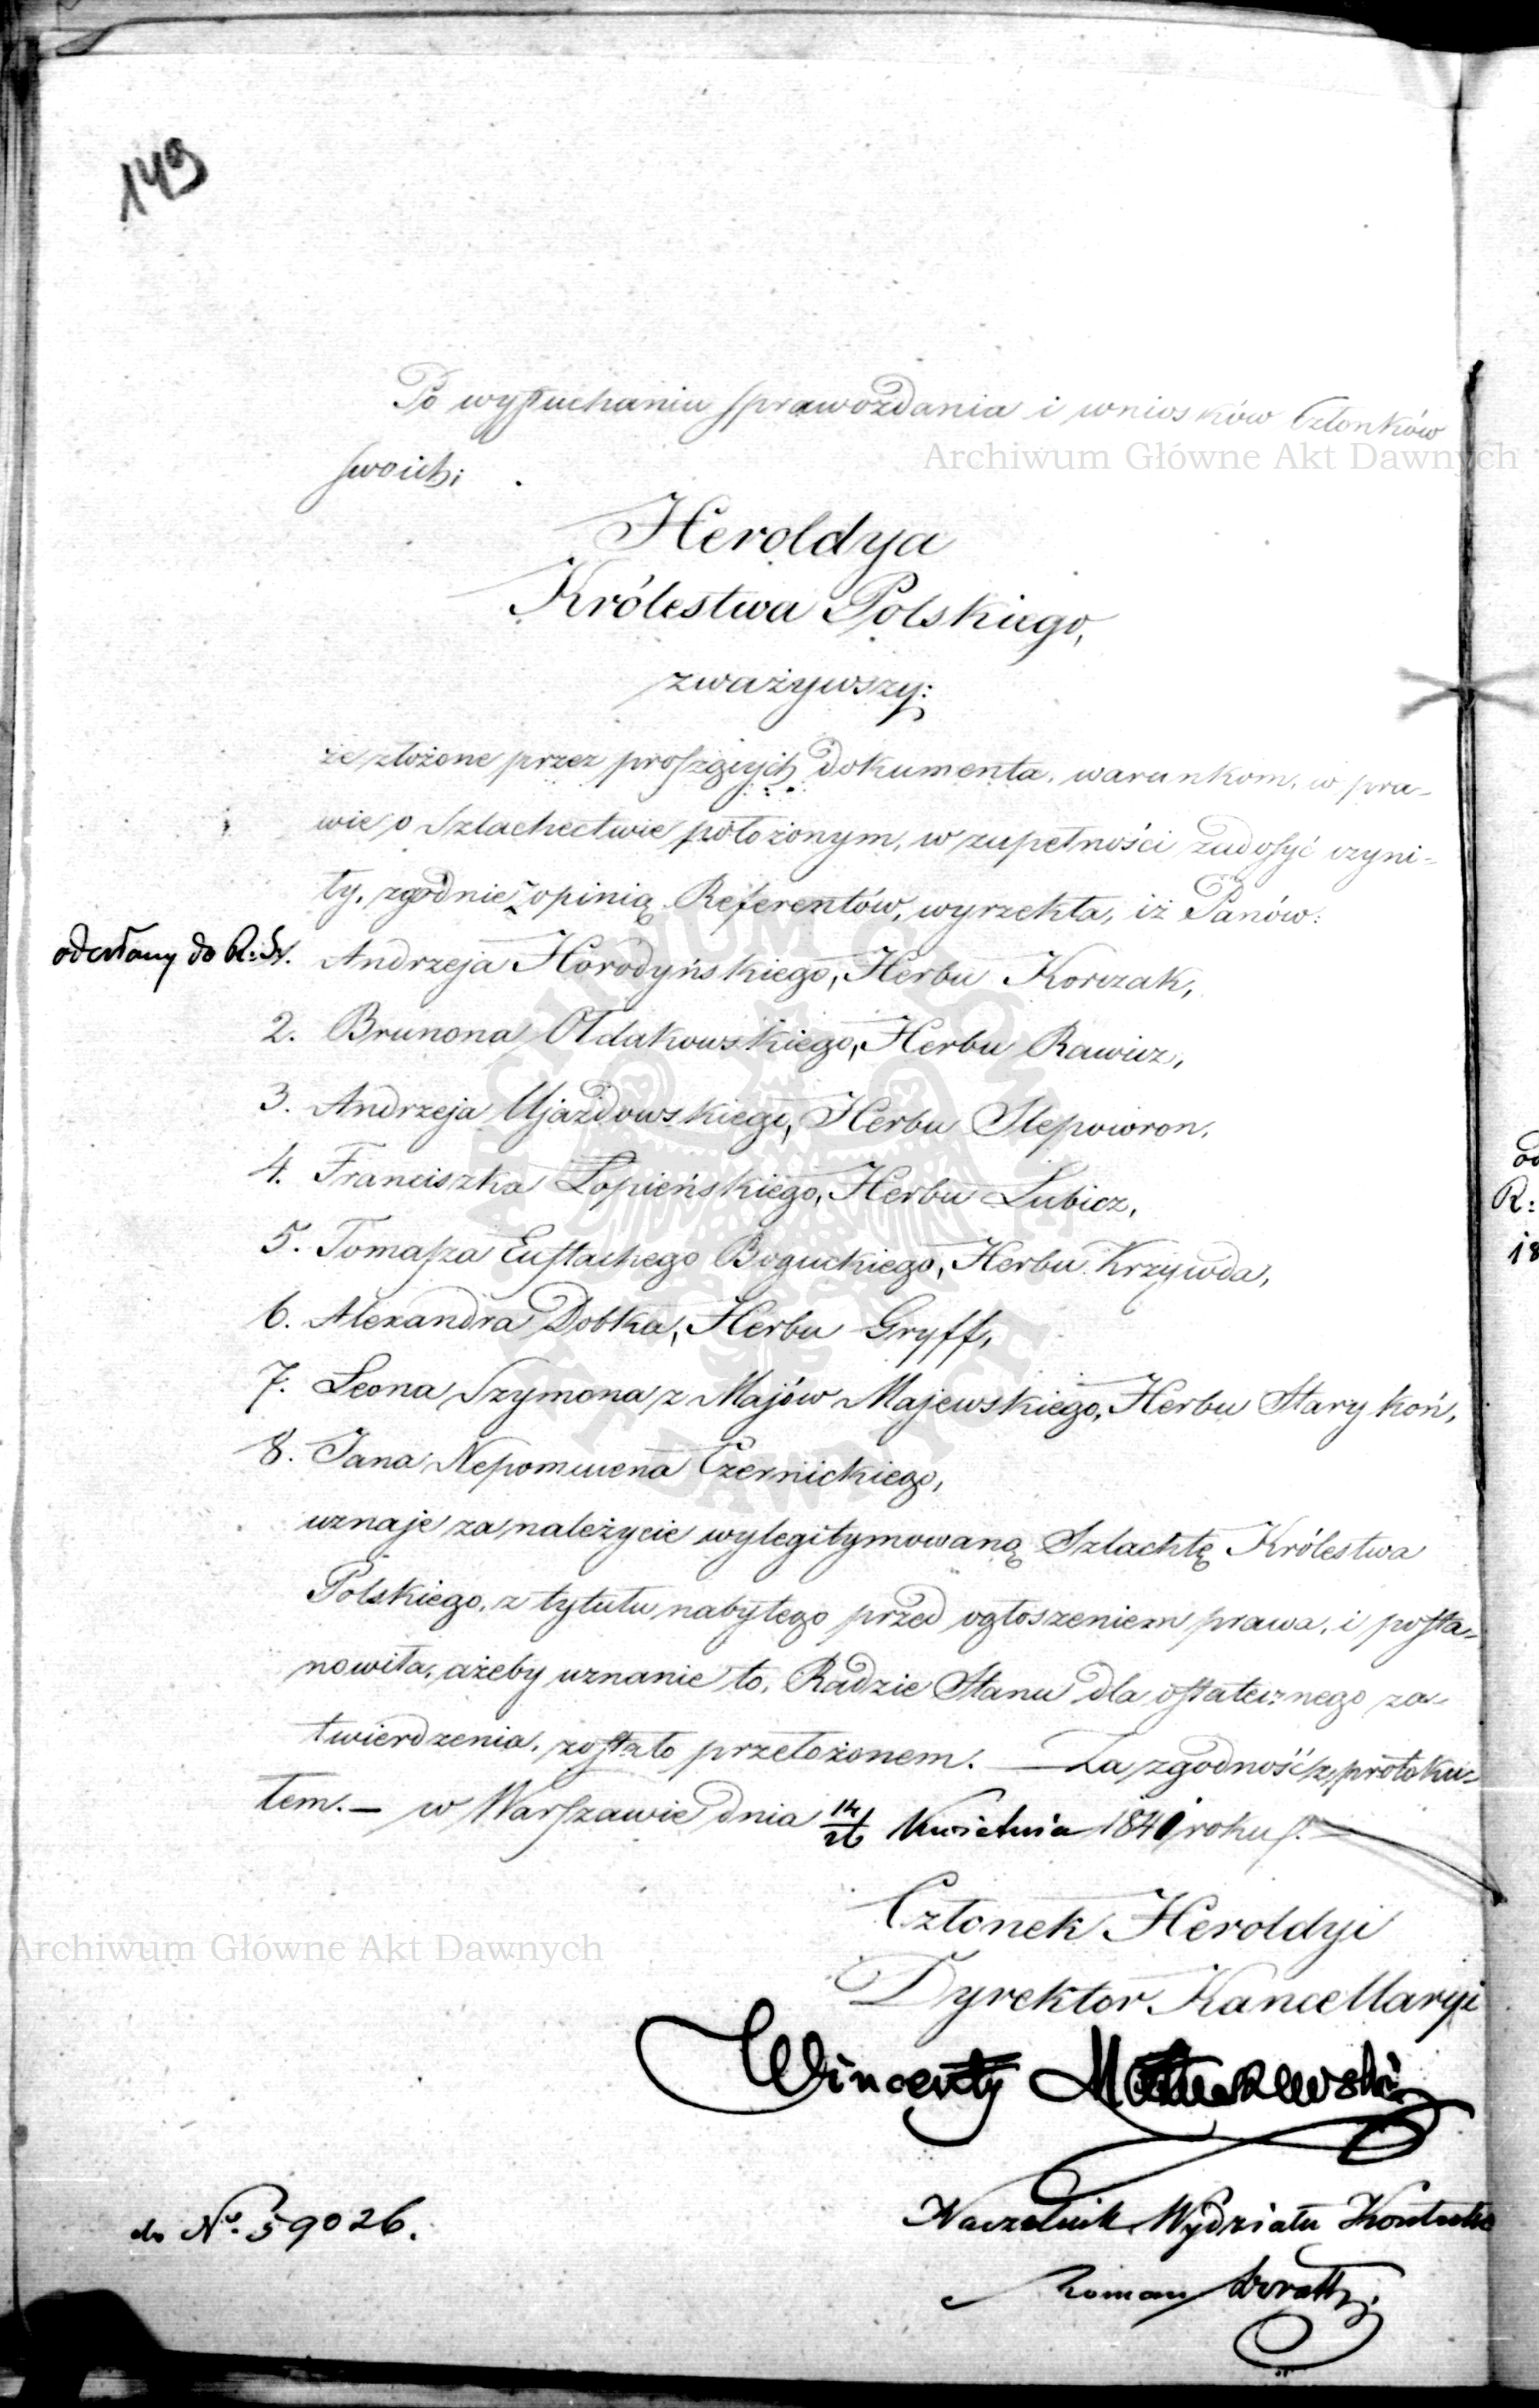 149
Po wysłuchaniu sprawozdania i wniosków Członków
swoich;
Heroldya
Królestwa Polskiego,
zważywszy:
że złożone przez proszących dokumenta, warunkom, w pra-
wie o Szlachectwie położonym, w zupełności zadosyć czyni-
ły, zgodnie z opinią Referentów, wyrzekła, iż Panów:
odesłany do R: St. Andrzeja Horodyńskiego, Herbu Korczak,
2. Brunona Ołdakowskiego, Herbu Rawicz,
3. Andrzeja Ujazdowskiego, Herbu Slepowron,
4. Franciszka Łopieńskiego, Herbu Lubicz,
5. Tomasza Eustachego Boguckiego, Herbu Krzywda,
6. Alexandra Dobka, Herbu Gryff,
7. Leona Szymona z Majów Majewskiego, Herbu Stary koń,
8. Jana Nepomucena Czernickiego,
uznaje za należycie wylegitymowaną Szlachtę Królestwa
Polskiego, z tytułu nabytego przed ogłoszeniem prawa, i posta-
nowiła, ażeby uznanie to, Radzie Stanu dla ostatecznego za-
twierdzenia, zostało przełożonem. — Za zgodność z protoku-
łem. — w Warszawie dnia 14/26 Kwietnia 1841 roku.
Członek Heroldyi
Dyrektor Kancellaryi
Wincenty Matuszewski
Naczelnik Wydziału
Roman
do No. 59026.
R:
18
Archiwum Główne Akt Dawnych
Archiwum Główne Akt Dawnych
ARCHIWUM GŁÓWNE AKT DAWNYCH